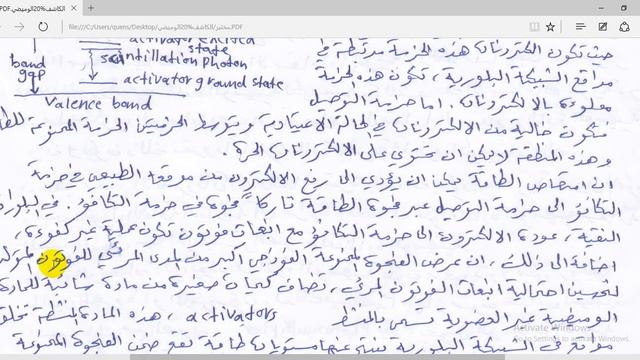 الكاشف%20الوميضي.PDF
file:///C:/Users/quens/Desktop/مختبر/الكاشف%20الوميضي.PDF
activator excited state
band gap
scintillation photon
activator ground state
Valence band
حيث تكون الكترونات هذه الحزمة مرتبطة في
مواقع الشبكة البلورية، تكون هذه الحزمة
مملوءة بالالكترونات. اما حزمة التوصيل
فتكون خالية من الالكترونات في الحالة الاعتيادية ويتوسط الحزمتين الحزمة الممنوعة للطا
وهذه المنطقة لا يمكن ان تحتوي على الالكترونات الحرة.
ان امتصاص الطاقة يمكن ان يؤدي الى رفع الالكترون من موقعه الطبيعي في حزمة
التكافؤ الى حزمة التوصيل عبر فجوة الطاقة تاركاً فجوة في حزمة التكافؤ. في البلورات
النقية، عودة الالكترون الى حزمة التكافؤ مع انبعاث فوتون تكون عملية غير كفوءة،
اضافة الى ذلك، ان عرض الفجوة الممنوعة النموذجي اكبر من المدى المرئي للفوتون المتولد
لتحسين احتمالية انبعاث الفوتون المرئي، تضاف كميات صغيرة من مادة شائبة للمادة
الوميضية غير العضوية تسمى بالمنشط activators، هذه المادة المنشطة تخلق
في الشبكة البلورية ينتج عنها مستويات طاقة تقع ضمن الفجوة الممنوعة
Activate Windows
Go to Settings to activate Windows.